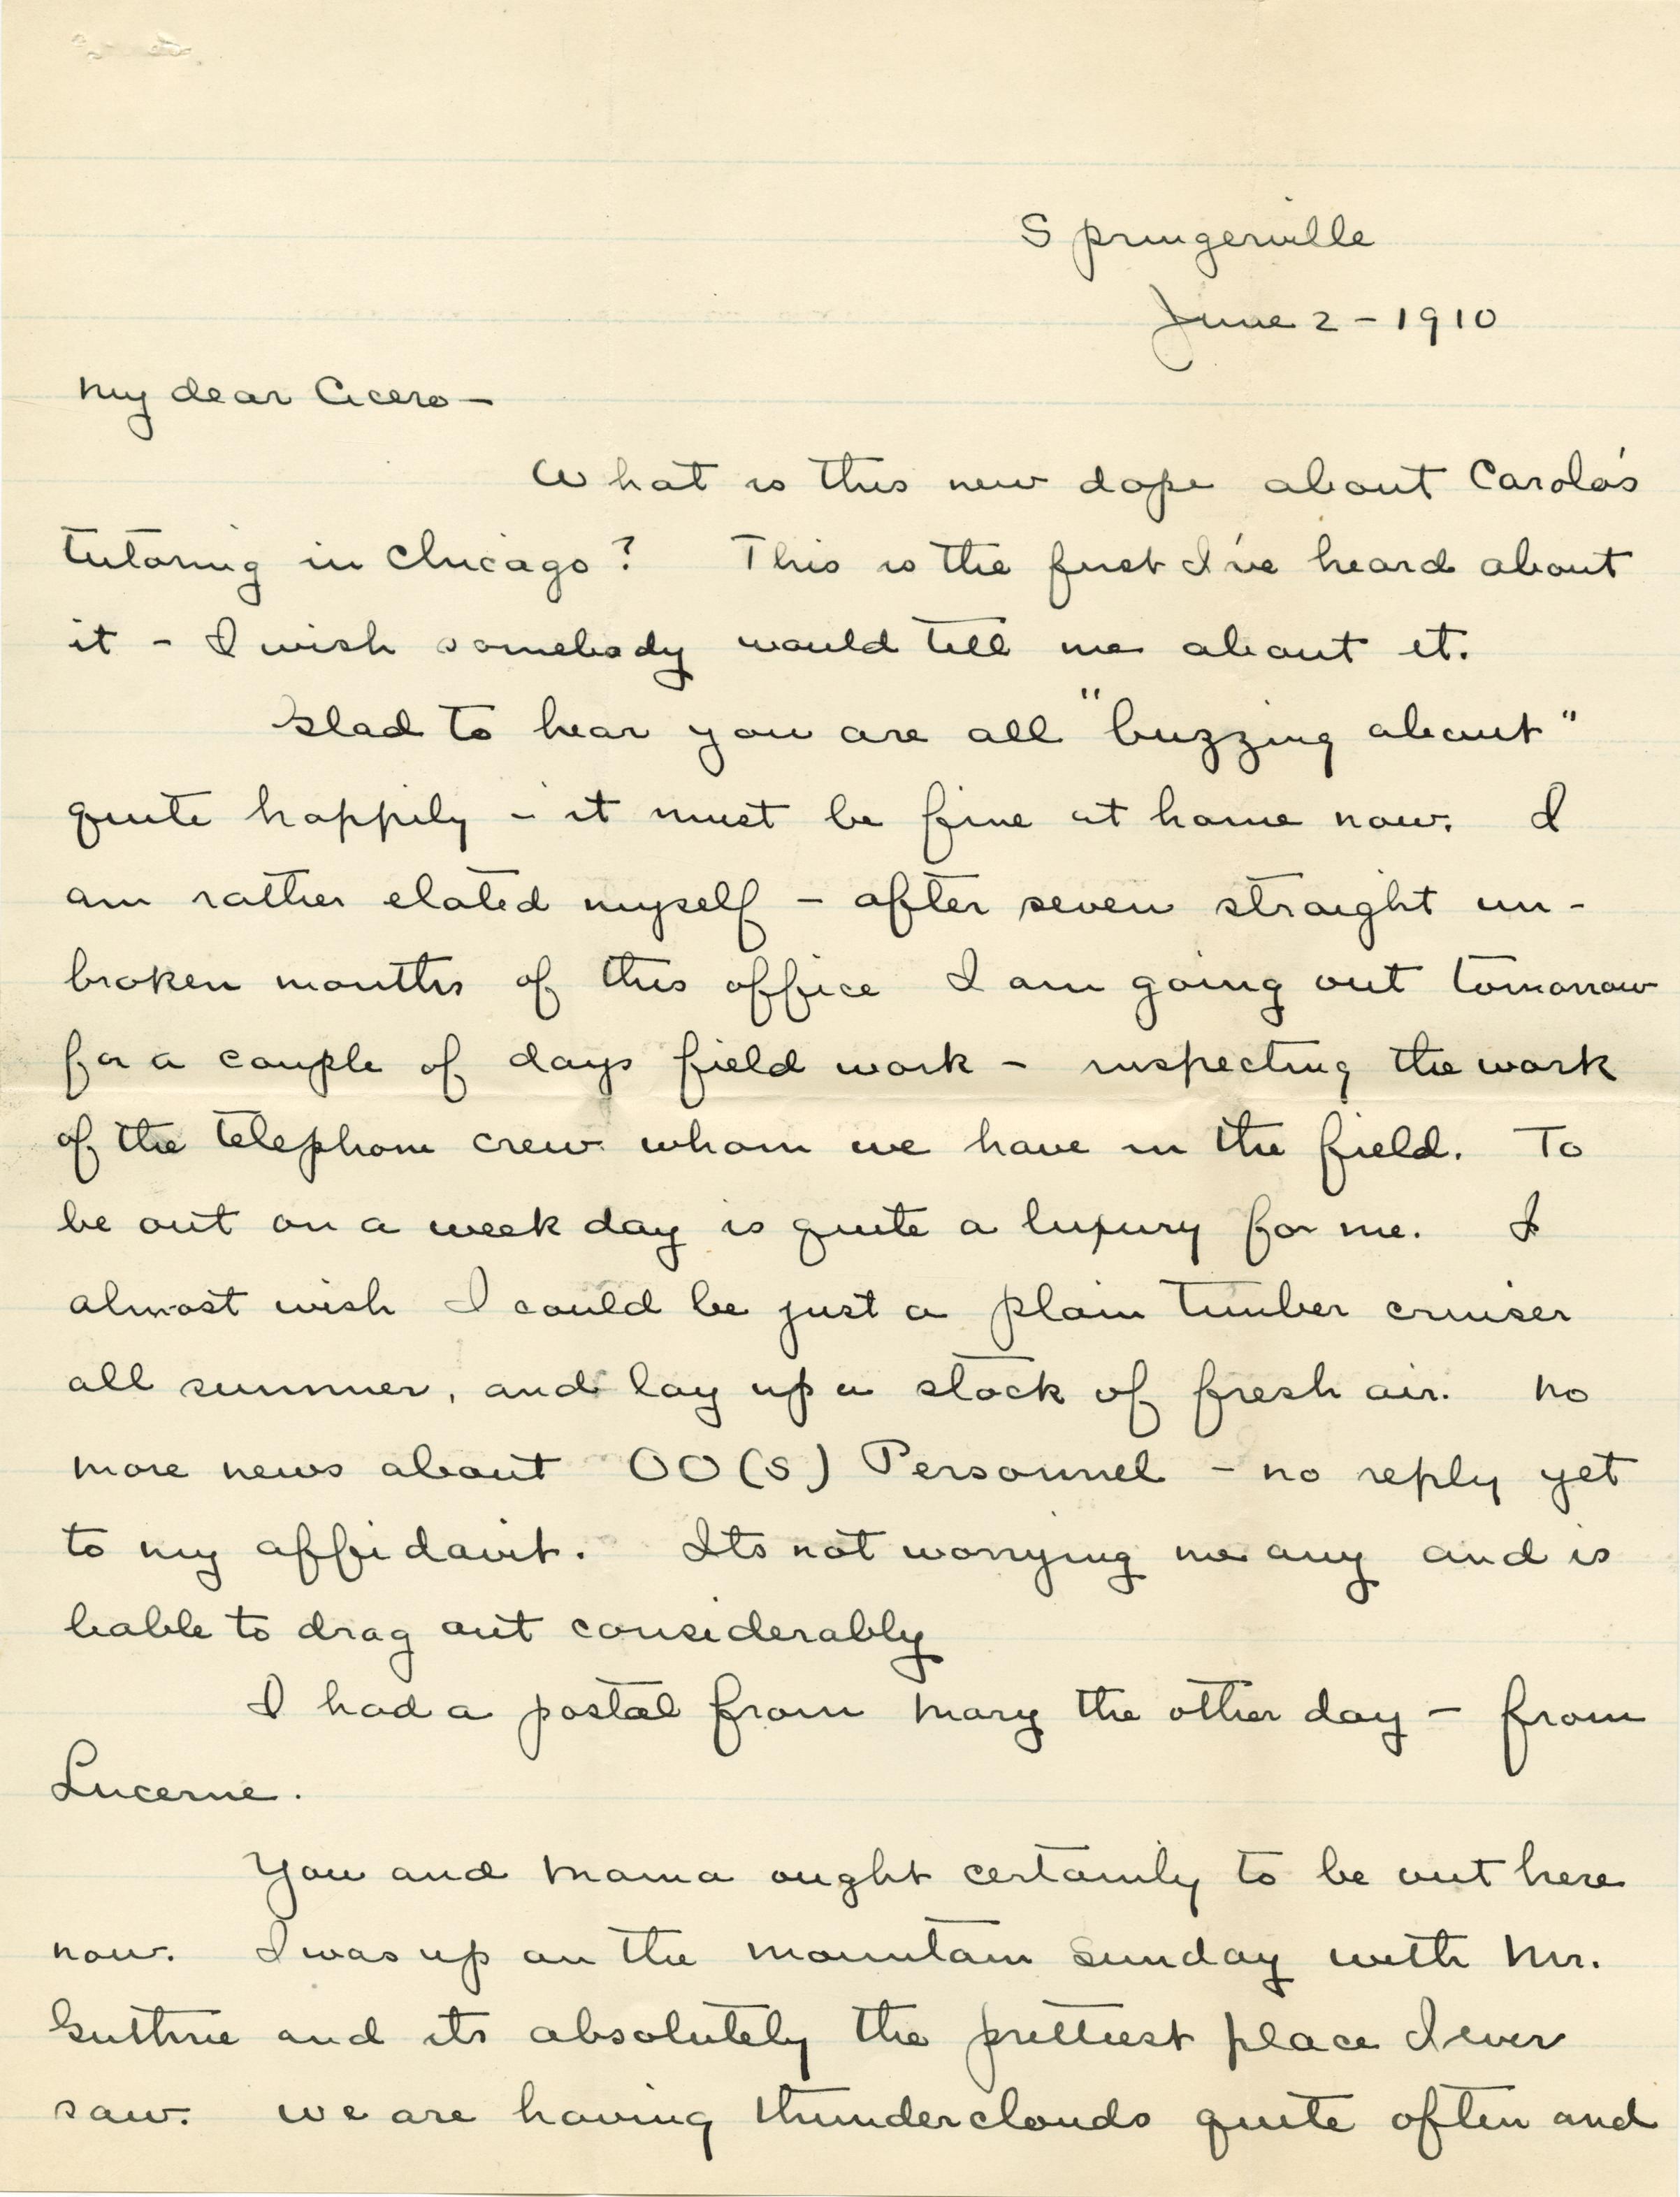 Springerville
June 2 - 1910
My dear Cicero -
What is this new dope about Carola's
tutoring in Chicago? This is the first I've heard about
it - I wish somebody would tell me about it.
Glad to hear you are all "buzzing about"
quite happily - it must be fine at home now. I
am rather elated myself - after seven straight un-
broken months of this office I am going out tomorrow
for a couple of days field work - inspecting the work
of the telephone crew whom we have in the field. To
be out on a week day is quite a luxury for me. I
almost wish I could be just a plain timber cruiser
all summer, and lay up a stock of fresh air. No
more news about OO(S) Personnel - no reply yet
to my affidavit. Its not worrying me any and is
liable to drag out considerably
I had a postal from Mary the other day - from
Lucerne.
You and Mama ought certainly to be out here
now. I was up on the mountain Sunday with Mr.
Guthrie and its absolutely the prettiest place I ever
saw. We are having thunderclouds quite often and